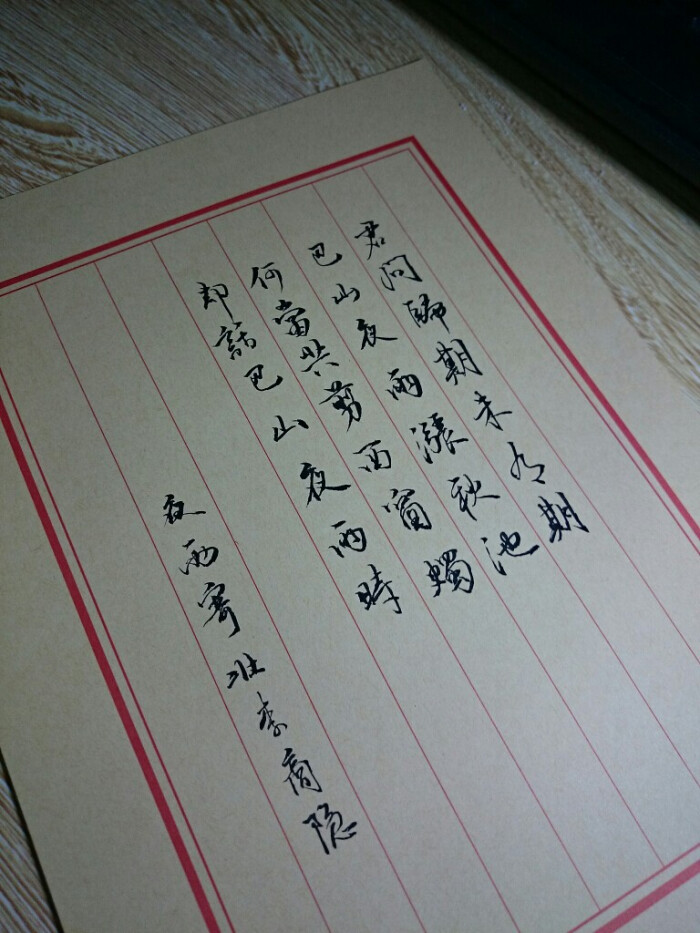 君问歸期未有期
巴山夜雨漲秋池
何當共剪西窗燭
却話巴山夜雨時
夜雨寄北李商隐